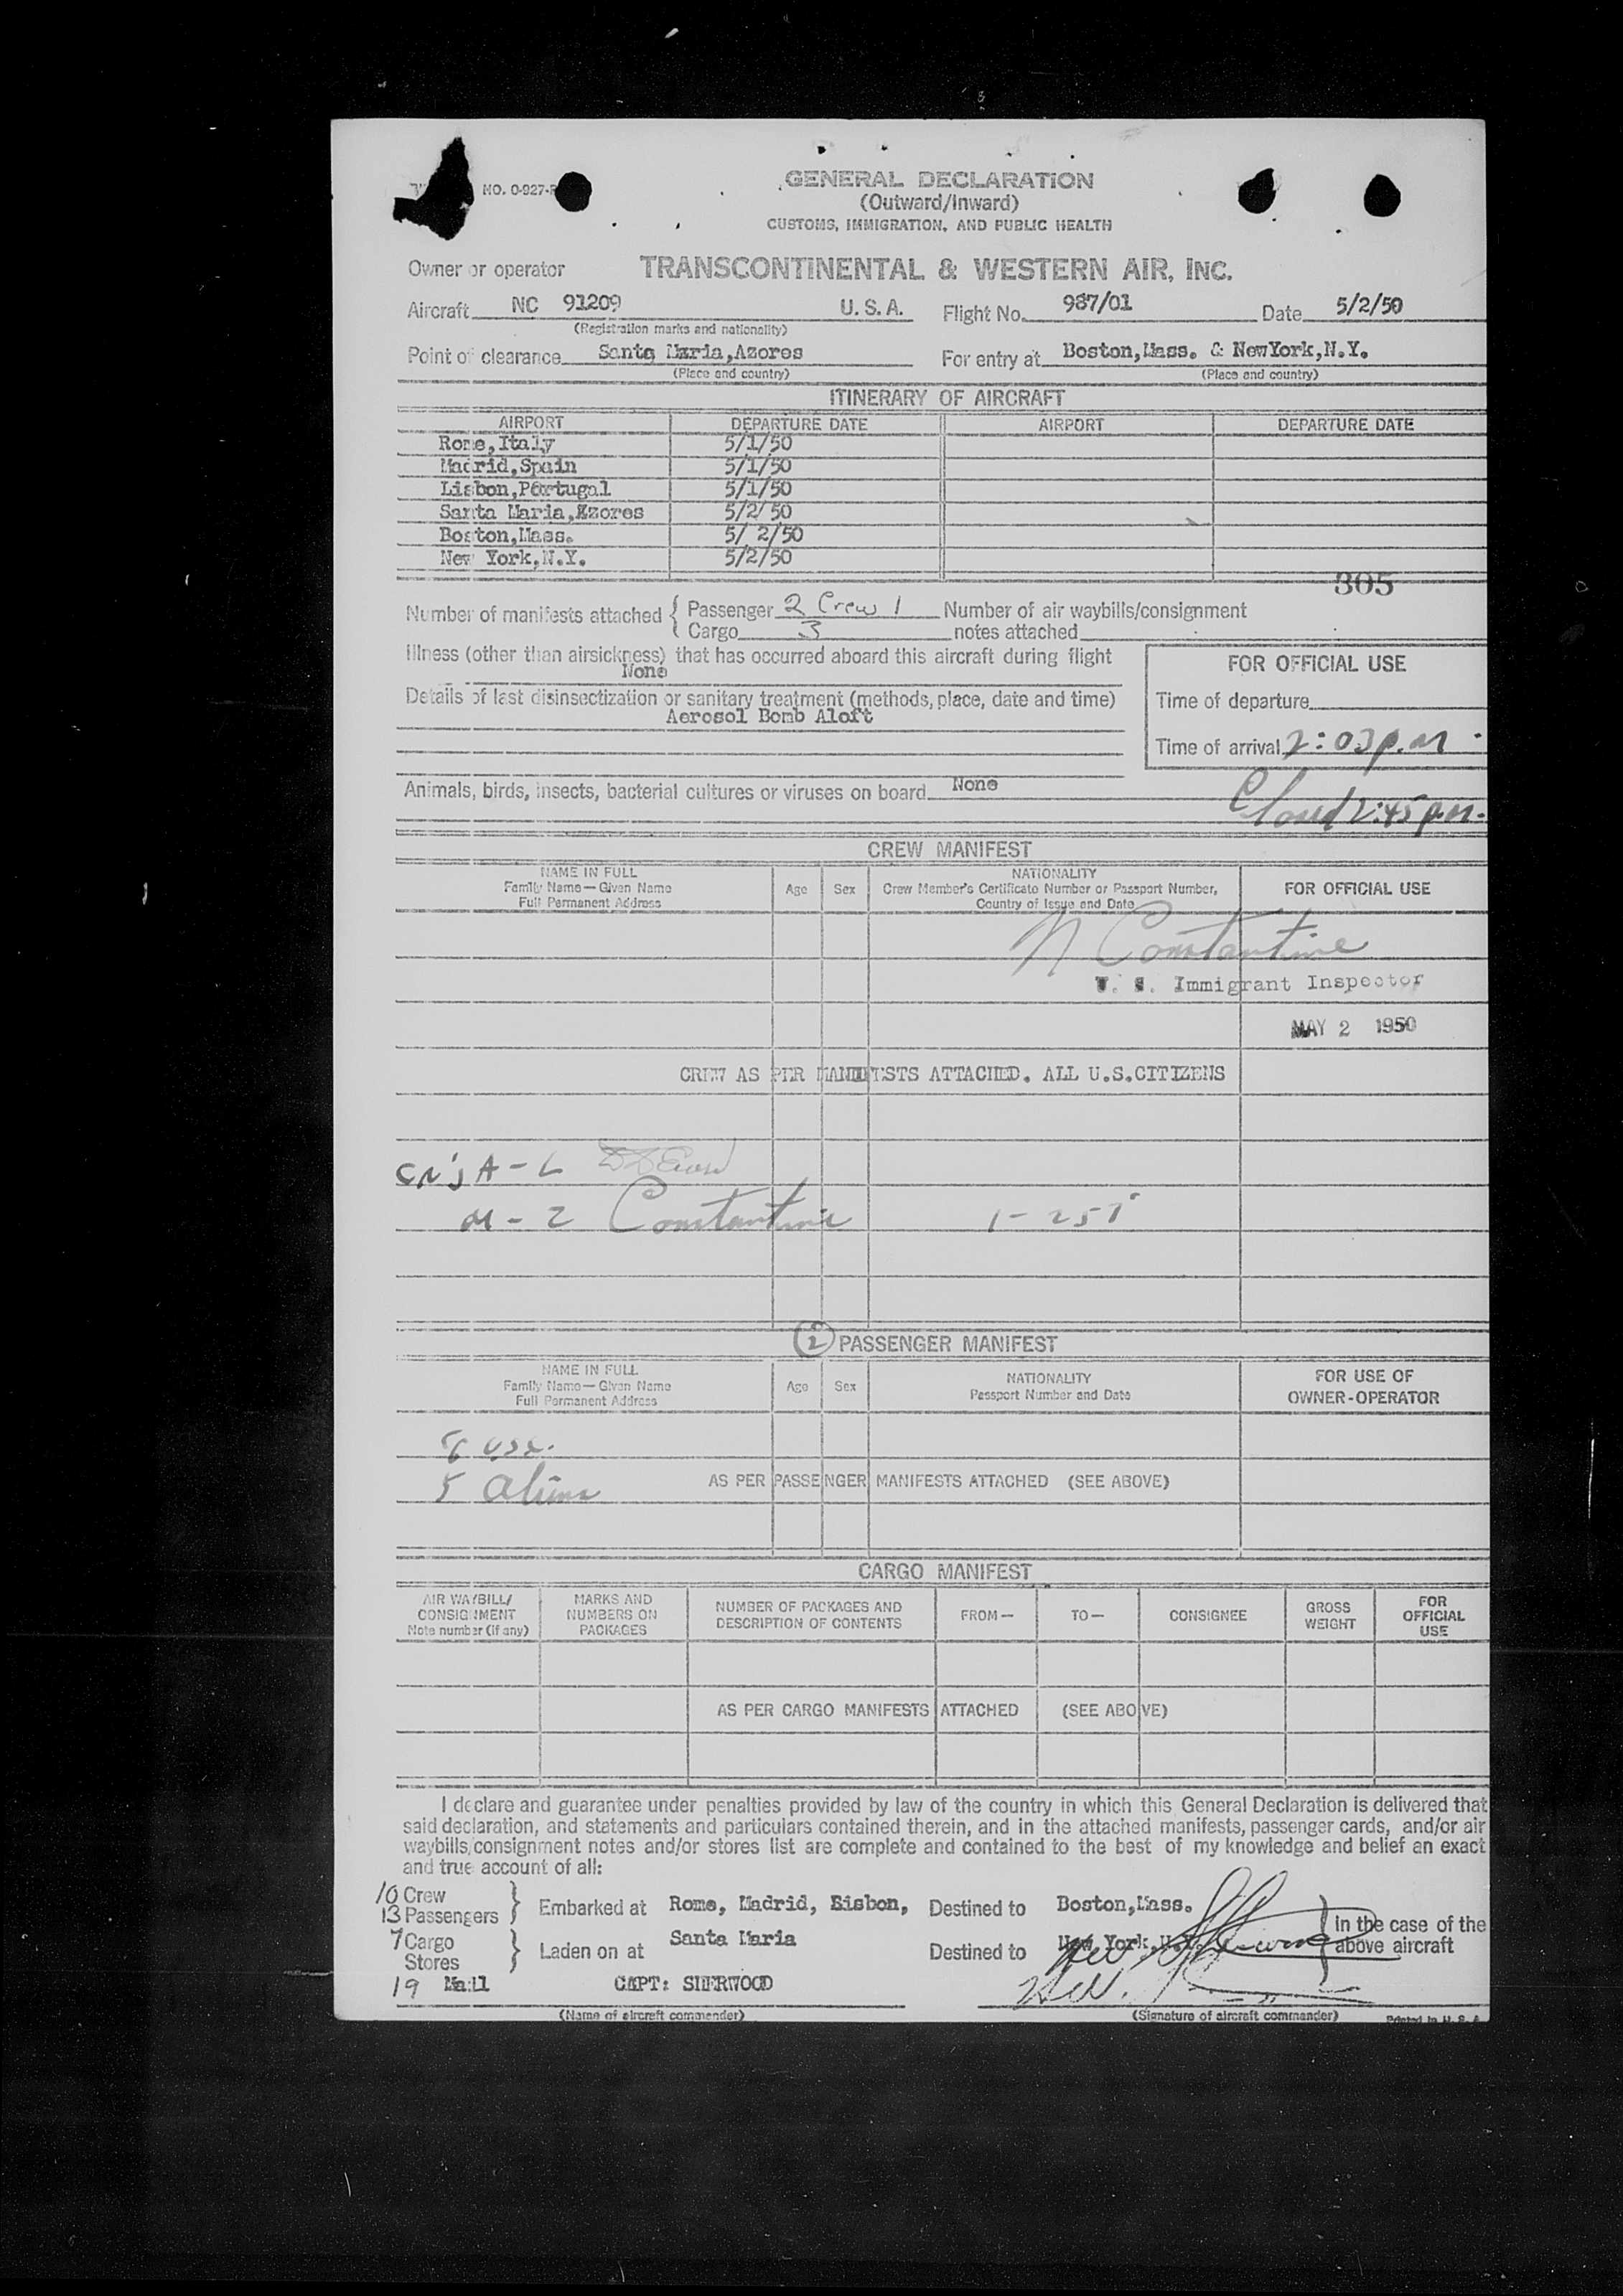 NO. 0-927-
GENERAL DECLARATION
(Outward/Inward)
CUSTOMS, IMMIGRATION, AND PUBLIC HEALTH
Owner or operator TRANSCONTINENTAL & WESTERN AIR, INC.
Aircraft NC 91209 U.S.A. Flight No. 987/01 Date 5/2/50
(Registration marks and nationality)
Point of clearance Santa Maria,Azores For entry at Boston,Mass. & NewYork,N.Y.
(Place and country) (Place and country)
ITINERARY OF AIRCRAFT
AIRPORT DEPARTURE DATE AIRPORT DEPARTURE DATE
Rome,Italy 5/1/50
Madrid,Spain 5/1/50
Lisbon,Portugal 5/1/50
Santa Maria,Azores 5/2/50
Boston,Mass. 5/ 2/50
New York,N.Y. 5/2/50
305
Number of manifests attached { Passenger 2 Crew 1 Number of air waybills/consignment
Cargo 3 notes attached
Illness (other than airsickness) that has occurred aboard this aircraft during flight
None
FOR OFFICIAL USE
Details of last disinsectization or sanitary treatment (methods, place, date and time)
Aerosol Bomb Aloft
Time of departure
Time of arrival 2:03 p.m.
Animals, birds, insects, bacterial cultures or viruses on board None
Closed 2:45 p.m.
CREW MANIFEST
NAME IN FULL
Family Name—Given Name
Full Permanent Address
Age Sex
NATIONALITY
Crew Member's Certificate Number or Passport Number,
Country of Issue and Date
FOR OFFICIAL USE
N Constantine
U. S. Immigrant Inspector
MAY 2 1950
CREW AS PER MANIFESTS ATTACHED. ALL U.S.CITIZENS
A-L
M-Z Constantine
2 PASSENGER MANIFEST
NAME IN FULL
Family Name—Given Name
Full Permanent Address
Age Sex
NATIONALITY
Passport Number and Date
FOR USE OF
OWNER-OPERATOR
8 USC.
5 Aliens AS PER PASSENGER MANIFESTS ATTACHED (SEE ABOVE)
CARGO MANIFEST
AIR WAYBILL/
CONSIGNMENT
Note number (if any)
MARKS AND
NUMBERS ON
PACKAGES
NUMBER OF PACKAGES AND
DESCRIPTION OF CONTENTS
FROM— TO— CONSIGNEE
GROSS
WEIGHT
FOR
OFFICIAL
USE
AS PER CARGO MANIFESTS ATTACHED (SEE ABOVE)
I declare and guarantee under penalties provided by law of the country in which this General Declaration is delivered that
said declaration, and statements and particulars contained therein, and in the attached manifests, passenger cards, and/or air
waybills/consignment notes and/or stores list are complete and contained to the best of my knowledge and belief an exact
and true account of all:
10 Crew
13 Passengers } Embarked at Rome, Madrid, Lisbon, Destined to Boston,Mass.
7 Cargo
Stores } Laden on at Santa Maria Destined to New York.N.Y. } in the case of the
above aircraft
19 Mail CAPT: SHERWOOD
(Name of aircraft commander) (Signature of aircraft commander) Printed in U. S. A.